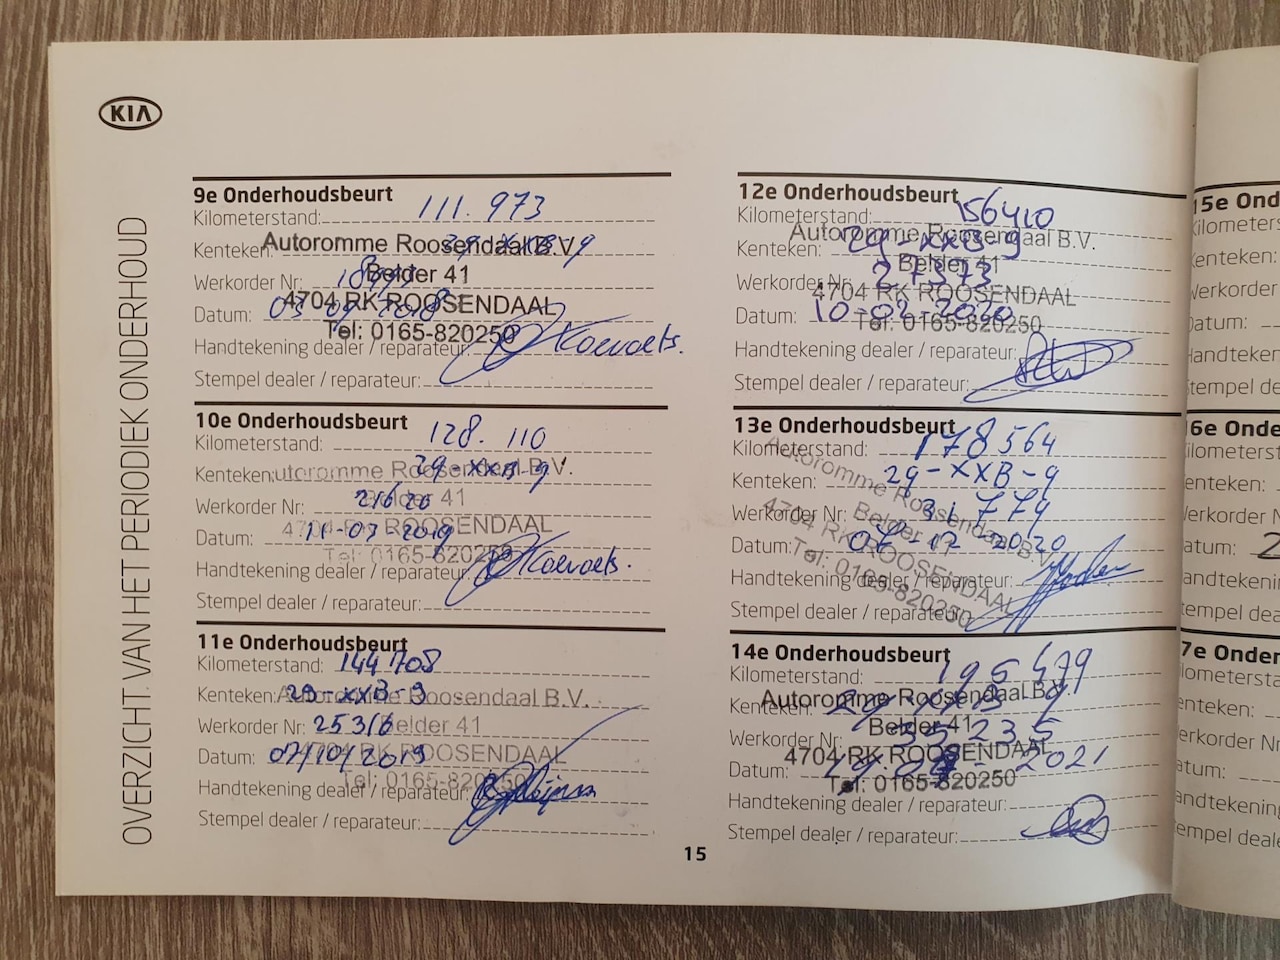 KIA
OVERZICHT VAN HET PERIODIEK ONDERHOUD
9e Onderhoudsbeurt
Kilometerstand: 111.973
Kenteken: 29-XXB-9
Autoromme Roosendaal B.V.
Werkorder Nr:
Belder 41
4704 RK ROOSENDAAL
Datum: 2018
Tel: 0165-820250
Handtekening dealer / reparateur:
Stempel dealer / reparateur:
10e Onderhoudsbeurt
Kilometerstand: 128.110
Kenteken: 29-XXB-9
utoromme Roosendaal B.V.
Werkorder Nr: 21626
Belder 41
4704 RK ROOSENDAAL
Datum: 11-03-2019
Tel: 0165-820250
Handtekening dealer / reparateur:
Stempel dealer / reparateur:
11e Onderhoudsbeurt
Kilometerstand: 144708
Kenteken: 29-XXB-9
Autoromme Roosendaal B.V.
Werkorder Nr: 25316
Belder 41
4704 RK ROOSENDAAL
Datum: 07/10/2019
Tel: 0165-820250
Handtekening dealer / reparateur:
Stempel dealer / reparateur:
12e Onderhoudsbeurt
Kilometerstand: 156410
Autoromme Roosendaal B.V.
Kenteken: 29-XXB-9
Belder 41
Werkorder Nr: 27373
4704 RK ROOSENDAAL
Datum: 10-02-2020
Tel: 0165-820250
Handtekening dealer / reparateur:
Stempel dealer / reparateur:
13e Onderhoudsbeurt
Kilometerstand: 178564
Autoromme Roosendaal B.V.
Kenteken: 29-XXB-9
Belder 41
Werkorder Nr: 31774
4704 RK ROOSENDAAL
Datum: 07-12-2020
Tel: 0165-820250
Handtekening dealer / reparateur:
Stempel dealer / reparateur:
14e Onderhoudsbeurt
Kilometerstand: 195479
Autoromme Roosendaal B.V.
Kenteken: 29-XXB-9
Belder 41
Werkorder Nr: 35235
4704 RK ROOSENDAAL
Datum: 2021
Tel: 0165-820250
Handtekening dealer / reparateur:
Stempel dealer / reparateur:
15
15e Ond
ilometers
enteken:
erkorder
atum:
andteken
tempel de
16e Onde
ilometerst
enteken:
erkorder N
atum: 2
andtekenin
tempel dea
7e Onder
ilometersta
enteken:
erkorder Nr
atum:
andtekening
empel deale